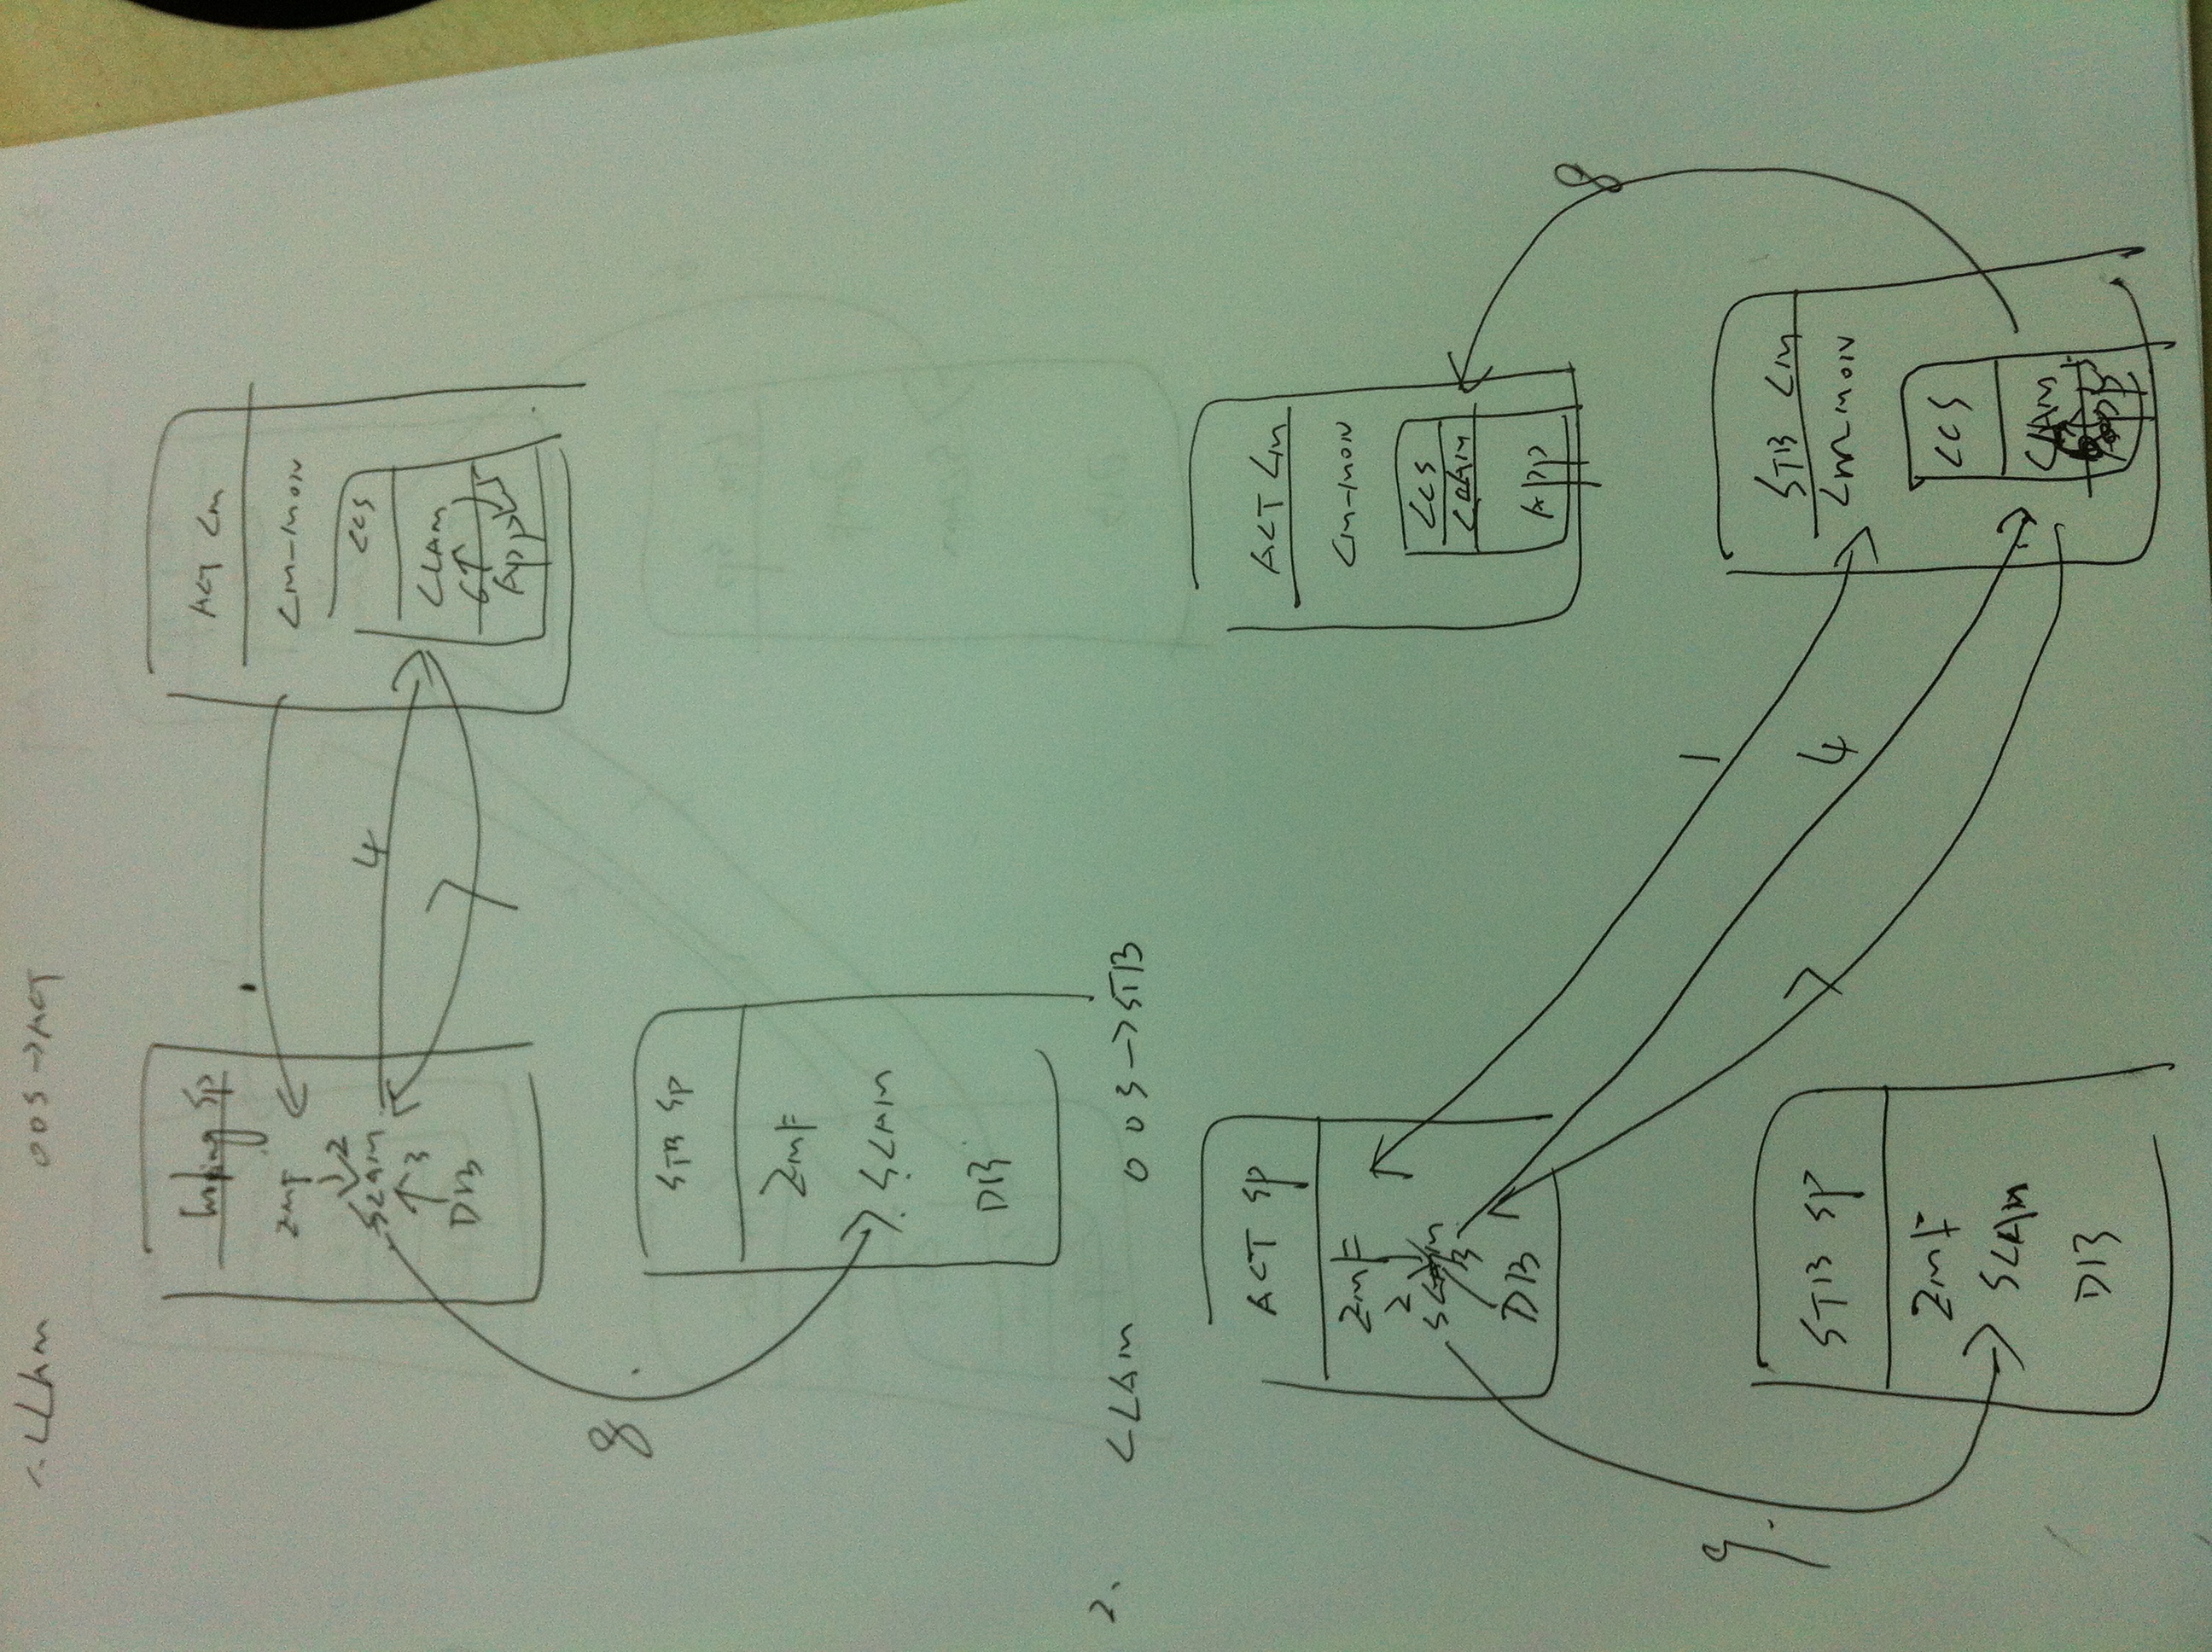 CLAM 00S→ACT
Working SP
ZMF
2
SCAM
3
DB
ACT CM
CM-MON
CCS
CLAM
6 5
App
1
4
7
8
STB SP
ZMF
SCAM
DB
2. CLAM 00S→STB
ACT SP
ZMF
2
SCAM
3
DB
ACT CM
CM-MON
CCS
CLAM
App
1
4
7
8
9
STB SP
ZMF
SCAM
DB
STB CM
CM-MON
CCS
CLAM
App